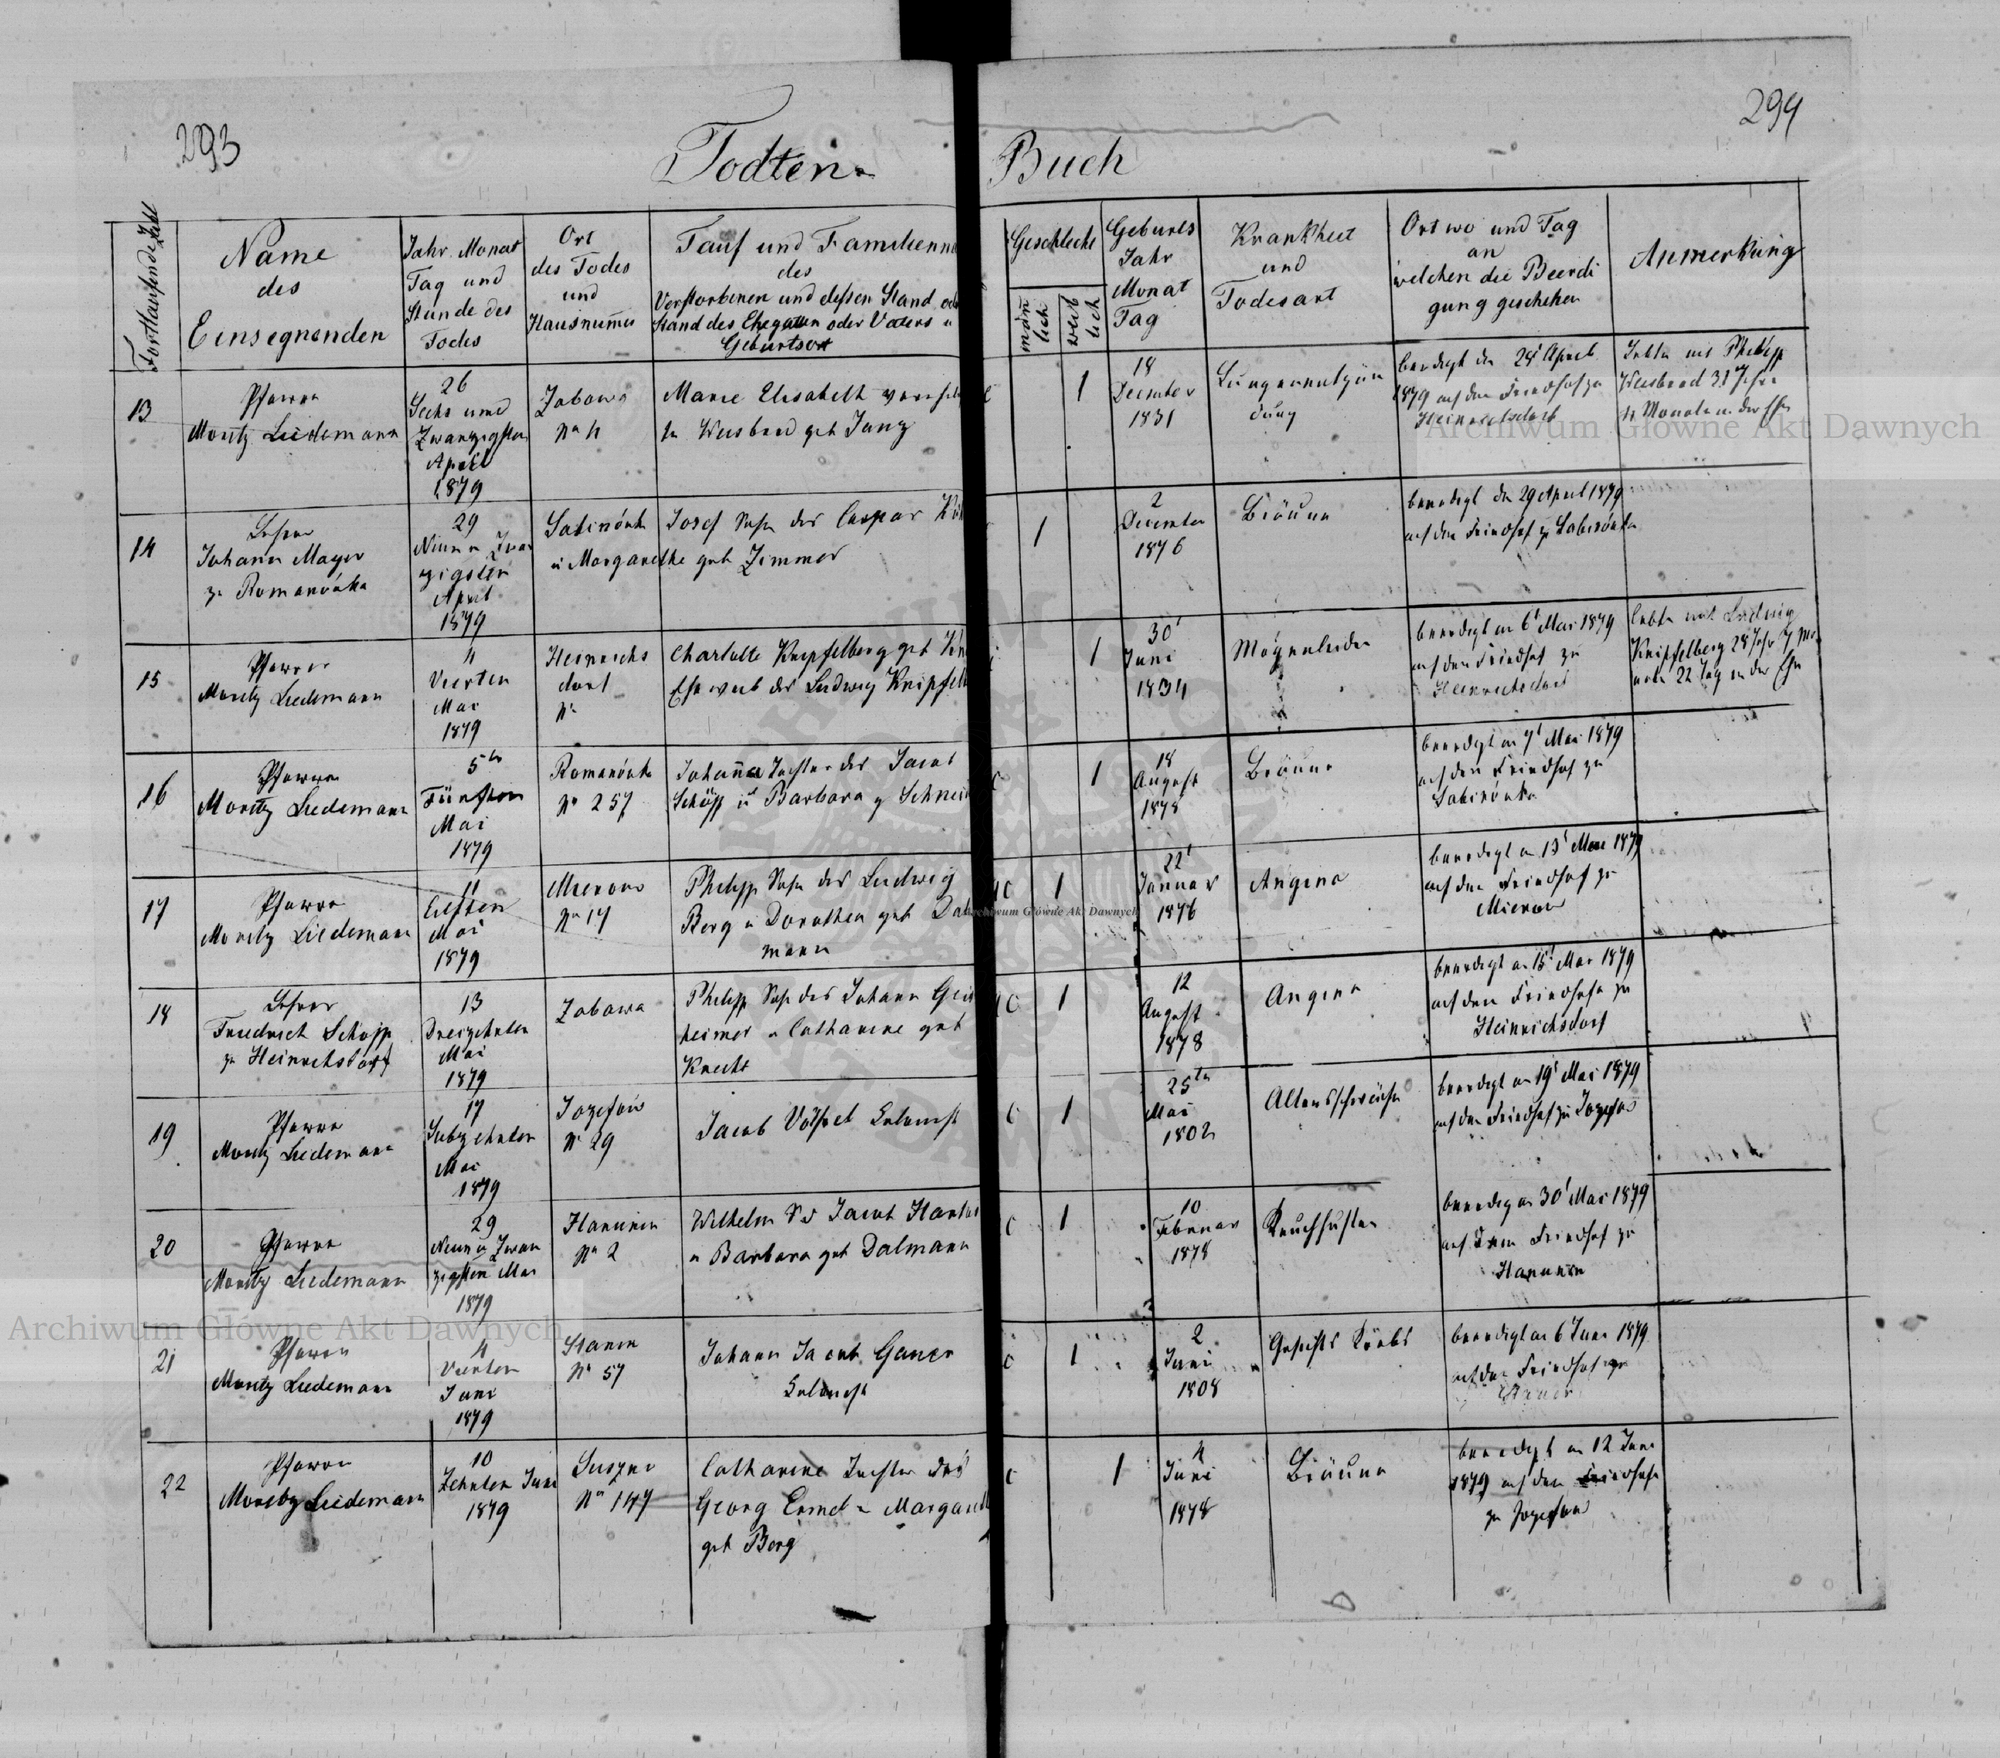 293
294
Todten-
Buch
Fortlaufende Zahl
Name
des
Einsegnenden
Jahr Monat
Tag und
Stunde des
Todes
Ort
des Todes
und
Hausnumer
Tauf und Familienna
des
Verstorbenen und dessen Stand od
Stand des Ehegatten oder Vaters u
Geburtsort
Geschlecht
män
lich
weib
lich
Geburts
Jahr
Monat
Tag
Krankheit
und
Todesart
Ort wo und Tag
an
welchen die Beerdi
gung geschehen
Anmerkung
13
Pfarrer
Moritz Liedemann
26
Sechs und
Zwanzigsten
April
1879
Zabawa
No 4
Marie Elisabeth
Weisbrod geb Jung
1
18
December
1831
Lungenentzün
dung
beerdigt den 28t April
1879 auf dem Friedhof zu
Heinrichsdorf
Lebte mit Philipp
Weisbrod 31 Jahre
Monate in der Ehe
14
Lehrer
Johann Mayer
zu Romanówka
29
Neun u Zwan
zigsten
April
1879
Sabinówka
Josef Sohn des Caspar
u Margarethe geb Zimmer
1
2
December
1876
Bräune
beerdigt den 29 April 1879
auf dem Friedhof zu Sabinówka
15
Pfarrer
Moritz Liedemann
4
Vierten
Mai
1879
Heinrichs
dorf
No
Charlotte Knipfelberg geb
Eheweib des Ludwig Knipfelb
1
30t
Juni
1834
Magenleiden
beerdigt am 6t Mai 1879
auf dem Friedhof zu
Heinrichsdorf
lebte mit Ludwig
Knipfelberg 28 Jahr 7 Mo
nate 22 Tag in der Ehe
16
Pfarrer
Moritz Liedemann
5ten
Fünften
Mai
1879
Romanówka
No 257
Johanna Tochter des Jacob
Schöpp u Barbara g Schnei
1
18
August
1878
Bräune
beerdigt am 7t Mai 1879
auf dem Friedhof zu
Sabinówka
17
Pfarrer
Moritz Liedemann
11
Eilften
Mai
1879
Mierow
No 14
Philipp Sohn des Ludwig
Berg u Dorothea geb Dal
mann
1
22t
Januar
1876
Angina
beerdigt am 13t Mai 1879
auf dem Friedhof zu
Mierow
18
Lehrer
Friedrich Schöpp
zu Heinrichsdorf
13
Dreizehnten
Mai
1879
Zabawa
Philipp Sohn des Johann
heimer u Catharine geb
Knecht
1
12
August
1878
Angina
beerdigt am 15t Mai 1879
auf dem Friedhofe zu
Heinrichsdorf
19
Pfarrer
Moritz Liedemann
17
Siebzehnten
Mai
1879
Jozefow
No 29
Jacob Völpel Colonist
1
25ten
Mai
1802
Altersschwäche
beerdigt am 19t Mai 1879
auf dem Friedhof zu Jozefow
20
Pfarrer
Moritz Liedemann
29
Neun u Zwan
zigsten Mai
1879
Hanunin
No 2
Wilhelm Jacob
u Barbara geb Dalmann
1
10
Februar
1878
Keuchhusten
beerdig am 30t Mai 1879
auf dem Friedhof zu
Hanunin
21
Pfarrer
Moritz Liedemann
4
Vierten
Juni
1879
Stanin
No 57
Johann Jacob Ganer
Colonist
1
2
Juni
1808
Gesichts Krebs
beerdigt am 6 Juni 1879
auf dem Friedhofe zu
22
Pfarrer
Moritz Liedemann
10
Zehnten Juni
1879
Suszno
No 147
Catharine Tochter des
Georg Ermel u Margareth
geb Berg
1
4
Juni
1878
Bräune
beerdigt am 12 Juni
1879 auf dem Friedhofe
zu Jozefow
Archiwum Główne Akt Dawnych
Archiwum Główne Akt Dawnych
Archiwum Główne Akt Dawnych